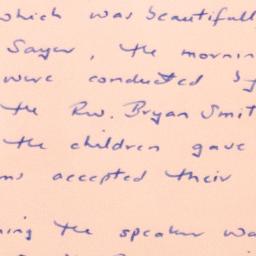 which was beautifull
Sayer, the mornin
were conducted by
the Rev. Bryan Smit
the children gave
ms accepted their
ning the speaker wa